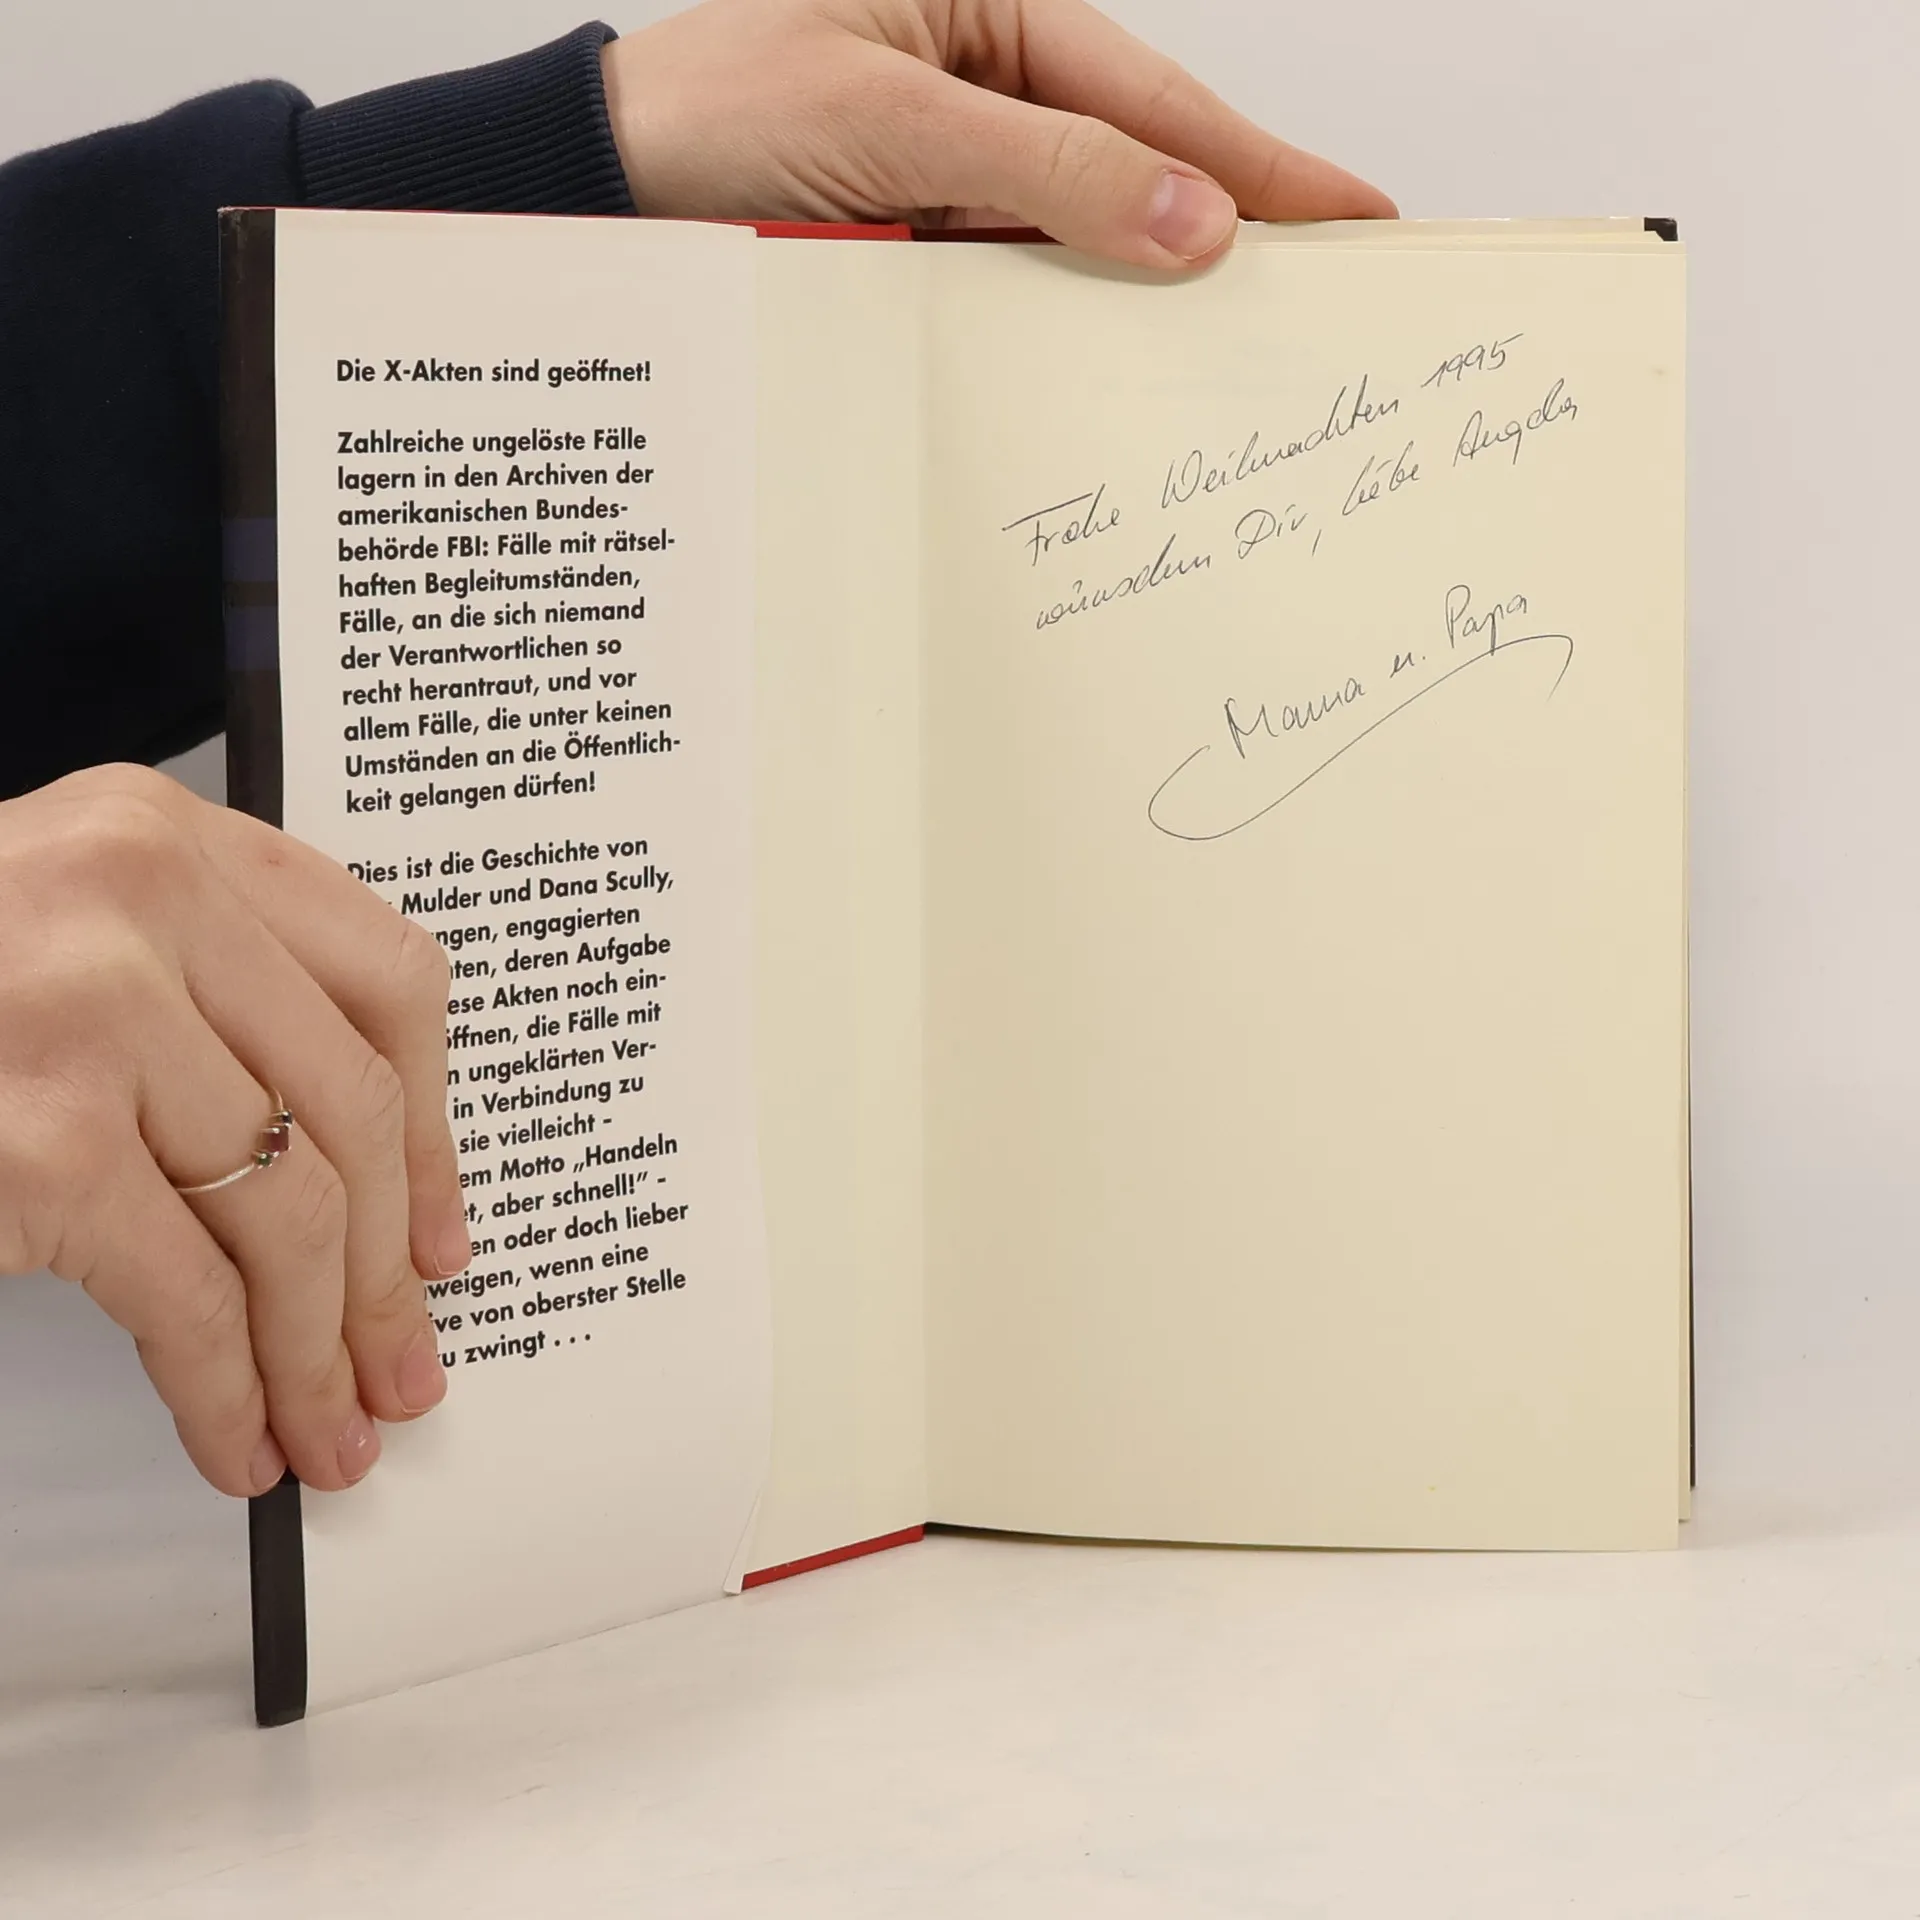 Die X-Akten sind geöffnet!
Zahlreiche ungelöste Fälle
lagern in den Archiven der
amerikanischen Bundes-
behörde FBI: Fälle mit rätsel-
haften Begleitumständen,
Fälle, an die sich niemand
der Verantwortlichen so
recht herantraut, und vor
allem Fälle, die unter keinen
Umständen an die Öffentlich-
keit gelangen dürfen!
Dies ist die Geschichte von
Mulder und Dana Scully,
ngen, engagierten
ten, deren Aufgabe
ese Akten noch ein-
öffnen, die Fälle mit
n ungeklärten Ver-
in Verbindung zu
sie vielleicht -
em Motto „Handeln
et, aber schnell!" -
en oder doch lieber
weigen, wenn eine
ve von oberster Stelle
u zwingt . . .
Frohe Weihnachten 1995
wünschen Dir, liebe Angela
Mama u. Papa